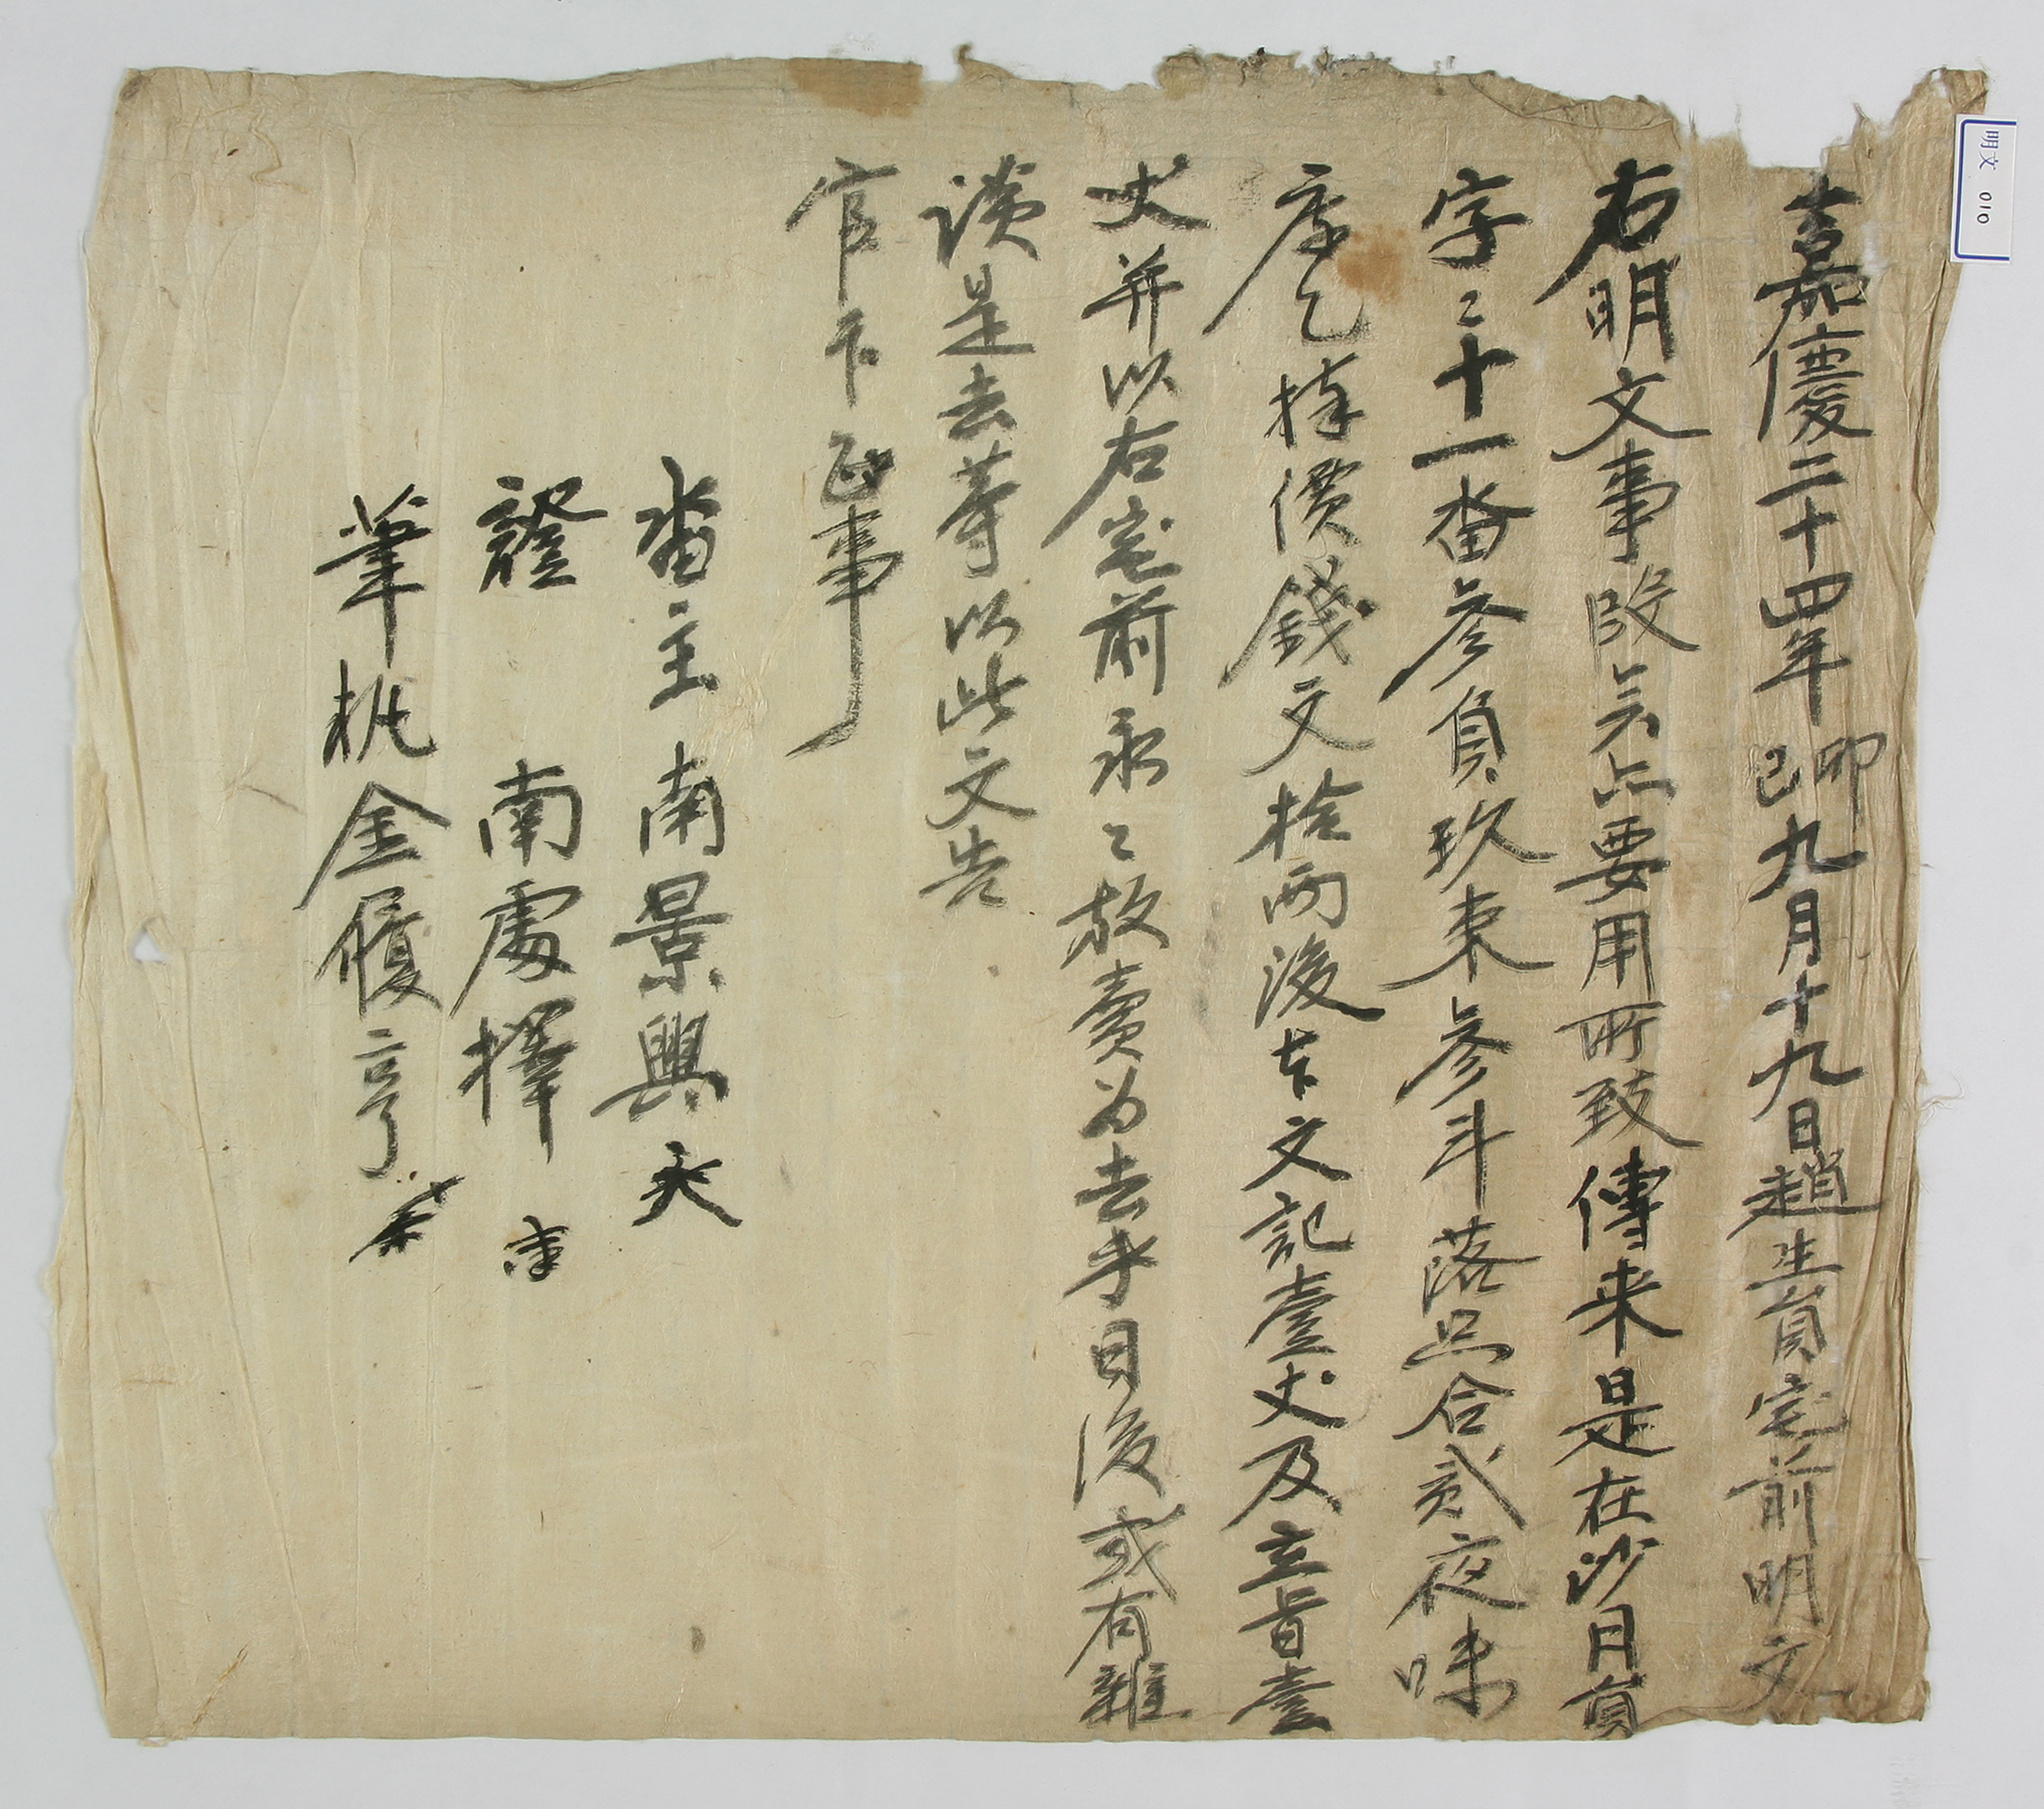 嘉慶二十四年己卯九月十九日趙生員宅前明文
右明文事段矣亦要用所致傳来是在沙月員
字〻十一畓參負玖束參斗落只合貳夜味
庫乙捧價錢文拾兩後本文記壹丈及立旨壹
丈并以右宅前永〻放賣为去乎日後或有雜
談是去等以此文告
官卞正事
畓主南景興
證 南處擇
筆執金履亨
明文 010